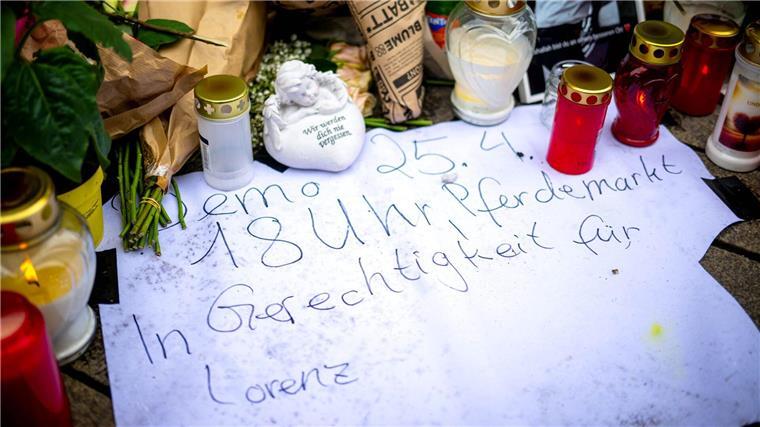 BLUME
RABATT
Wir werden
dich nie
vergessen.
Demo 25.4.
18 Uhr, Pferdemarkt
In Gerechtigkeit für
Lorenz